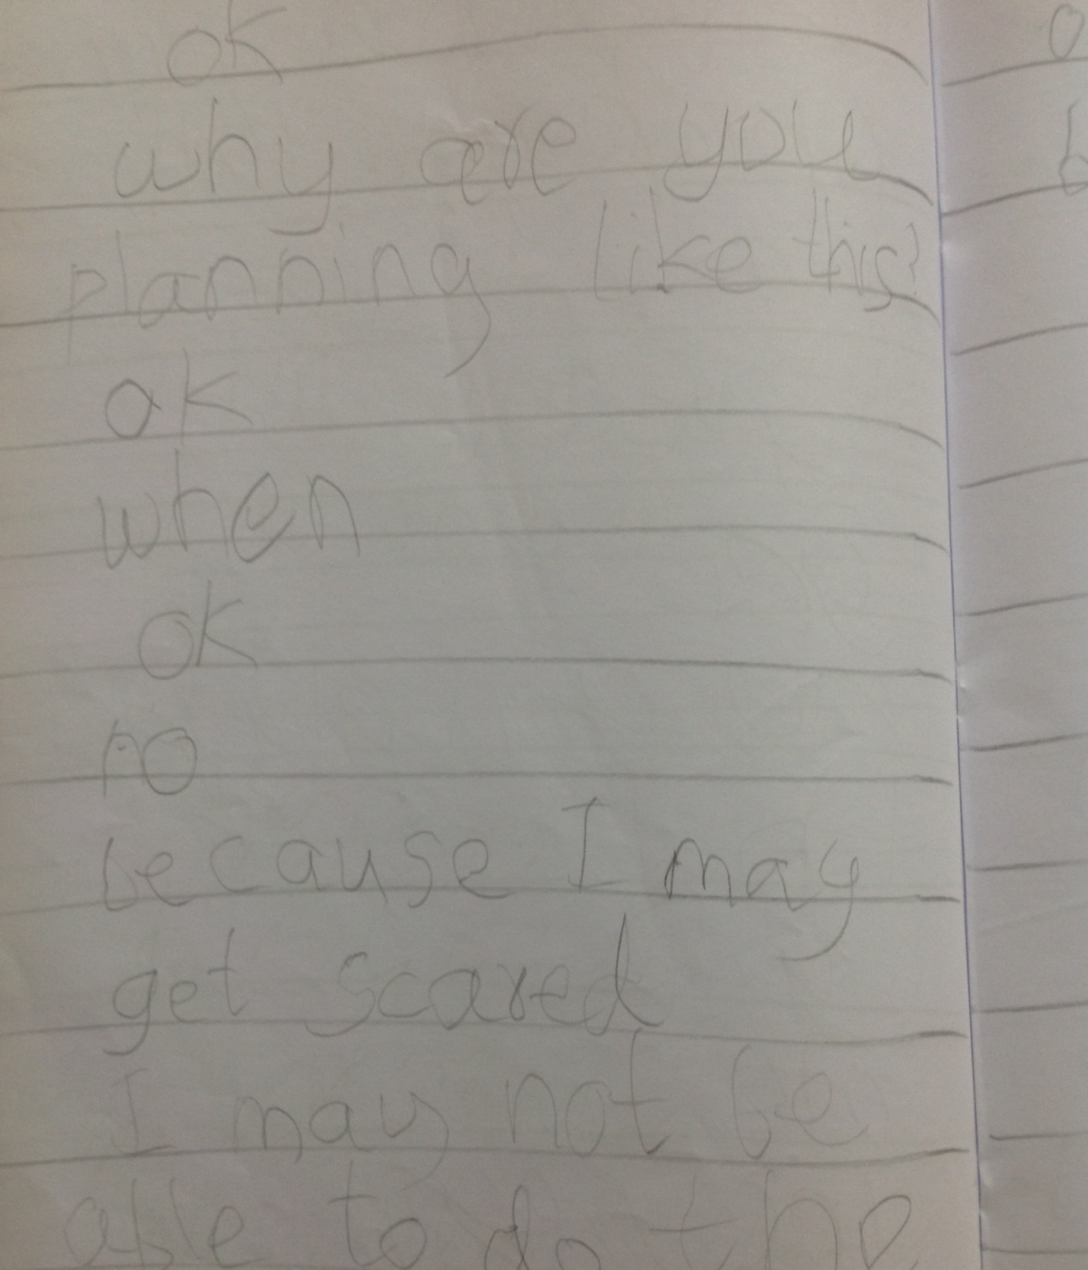 ok
why are you
planning like this?
ok
when
ok
no
because I may
get scared
I may not be
able to do the